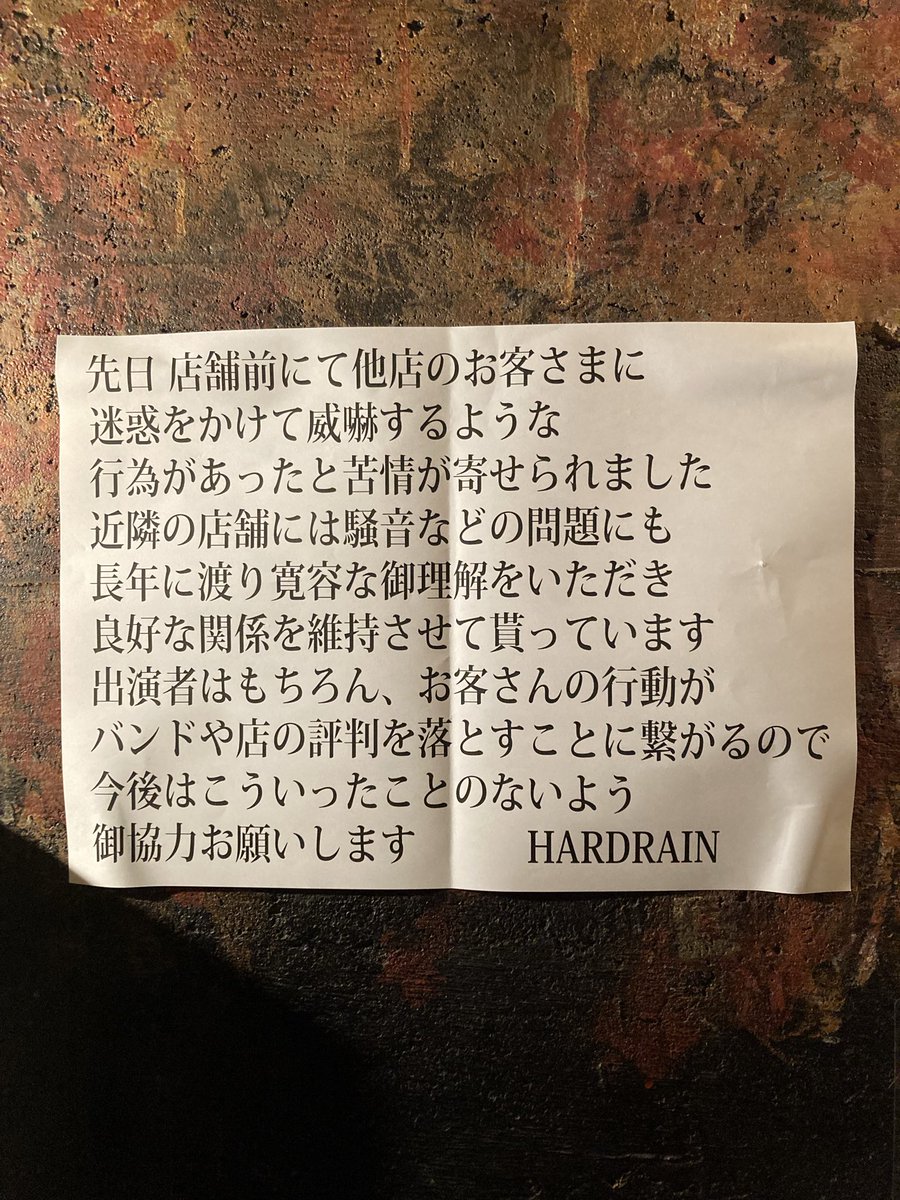 先日 店舗前にて他店のお客さまに
迷惑をかけて威嚇するような
行為があったと苦情が寄せられました
近隣の店舗には騒音などの問題にも
長年に渡り寛容な御理解をいただき
良好な関係を維持させて貰っています
出演者はもちろん、お客さんの行動が
バンドや店の評判を落とすことに繋がるので
今後はこういったことのないよう
御協力お願いします HARDRAIN